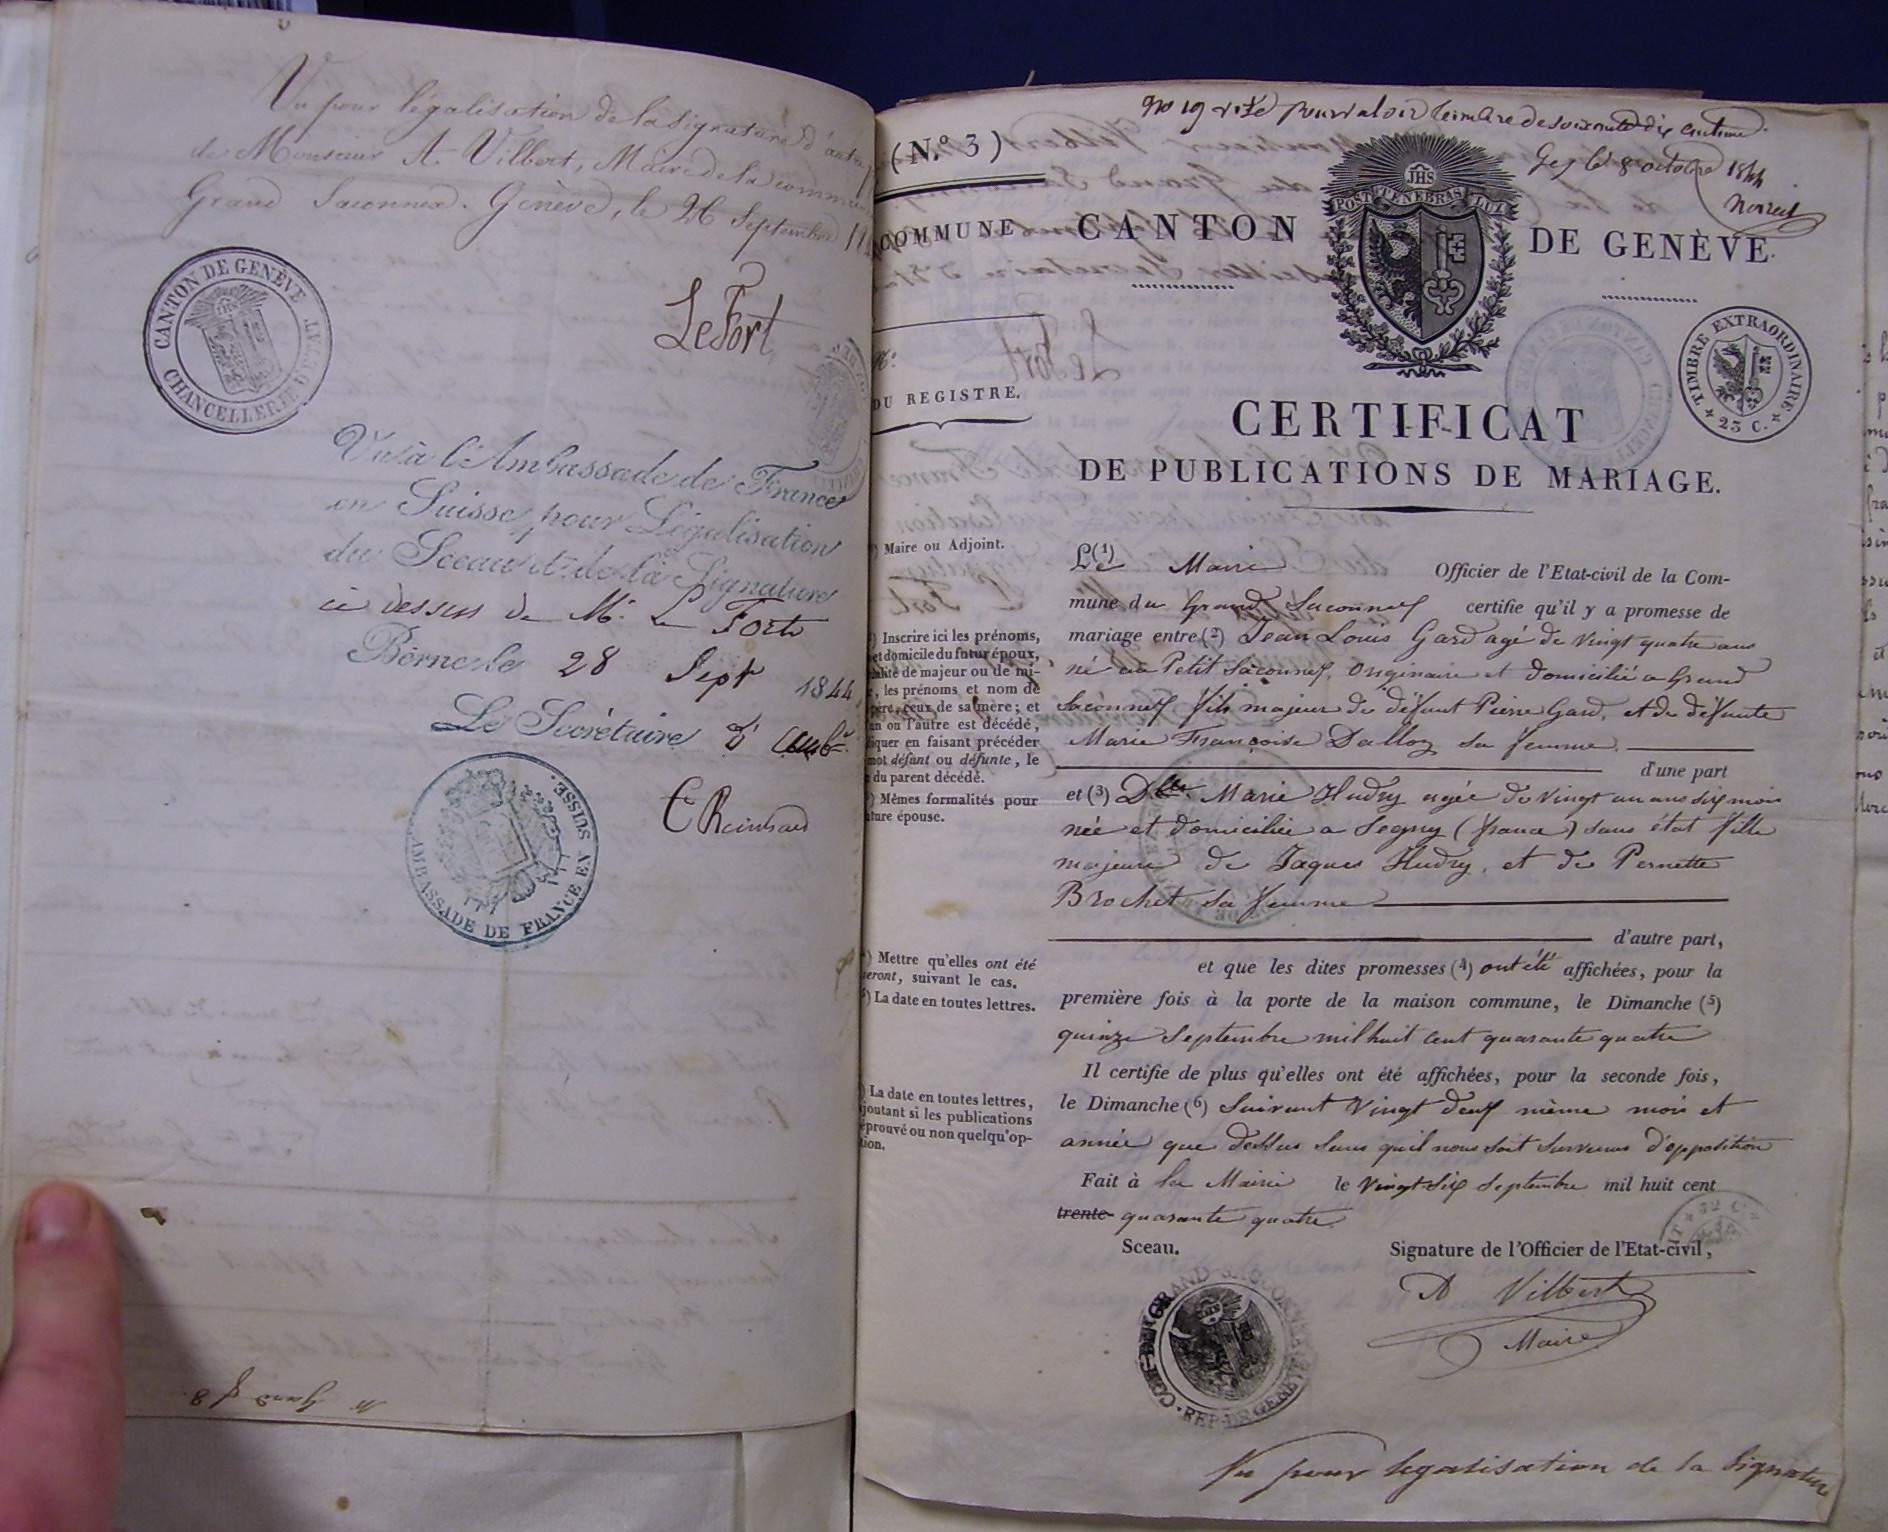 Vu pour légalisation de la signature d'autre
de Monsieur A. Vilbert, Maire de la commune
Grand Saconnex. Genève, le 26 Septembre
LeFort
CANTON DE GENÈVE
CHANCELLERIE D'ETAT
Vu à l'Ambassade de France
en Suisse, pour Légalisation
du Sceau et de la Signature
ci dessus de Mr. Le Fort
Berne le 28 Sept 1844
Le Secrétaire d'amb.
C Reinhard
AMBASSADE DE FRANCE EN SUISSE.
No 19 visé pour valoir timbre de soixante dix centimes.
Gex le 8 octobre 1844
(N.º 3)
COMMUNE
N.º
DU REGISTRE.
CANTON DE GENÈVE.
JHS
POST TENEBRAS LUX
TIMBRE EXTRAORDINAIRE
* 25 C. *
CERTIFICAT
DE PUBLICATIONS DE MARIAGE.
) Maire ou Adjoint.
) Inscrire ici les prénoms,
et domicile du futur époux,
qualité de majeur ou de mi-
, les prénoms et nom de
père, ceux de sa mère; et
un ou l'autre est décédé,
iquer en faisant précéder
mot défunt ou défunte, le
du parent décédé.
) Mêmes formalités pour
ture épouse.
) Mettre qu'elles ont été
seront, suivant le cas.
) La date en toutes lettres.
) La date en toutes lettres,
joutant si les publications
éprouvé ou non quelqu'op-
tion.
Le (1) Maire Officier de l'Etat-civil de la Com-
mune du Grand Saconnex certifie qu'il y a promesse de
mariage entre (2) Jean Louis Gard agé de vingt quatre ans
né au Petit Saconnex, Originaire et domicilié a Grand
Saconnex fils majeur de défunt Pierre Gard, et de défunte
Marie Françoise Dalloz sa femme.
d'une part
et (3) Dlle Marie Hudry agée de vingt un ans six mois
née et domiciliée a Segny (france) sans état fille
majeure de Jaques Hudry, et de Pernette
Brochet sa femme
d'autre part,
et que les dites promesses (4) ont été affichées, pour la
première fois à la porte de la maison commune, le Dimanche (5)
quinze Septembre mil huit cent quarante quatre
Il certifie de plus qu'elles ont été affichées, pour la seconde fois,
le Dimanche (6) Suivant vingt deux même mois et
année que dessus sans qu'il nous soit survenus d'opposition
Fait à la Mairie le vingt Six Septembre mil huit cent
trente quarante quatre.
Sceau.
Signature de l'Officier de l'Etat-civil,
A Vilbert
Maire
COM: DE GRAND SACONNEX
REP. DE GENEVE
Vu pour légalisation de la Signature